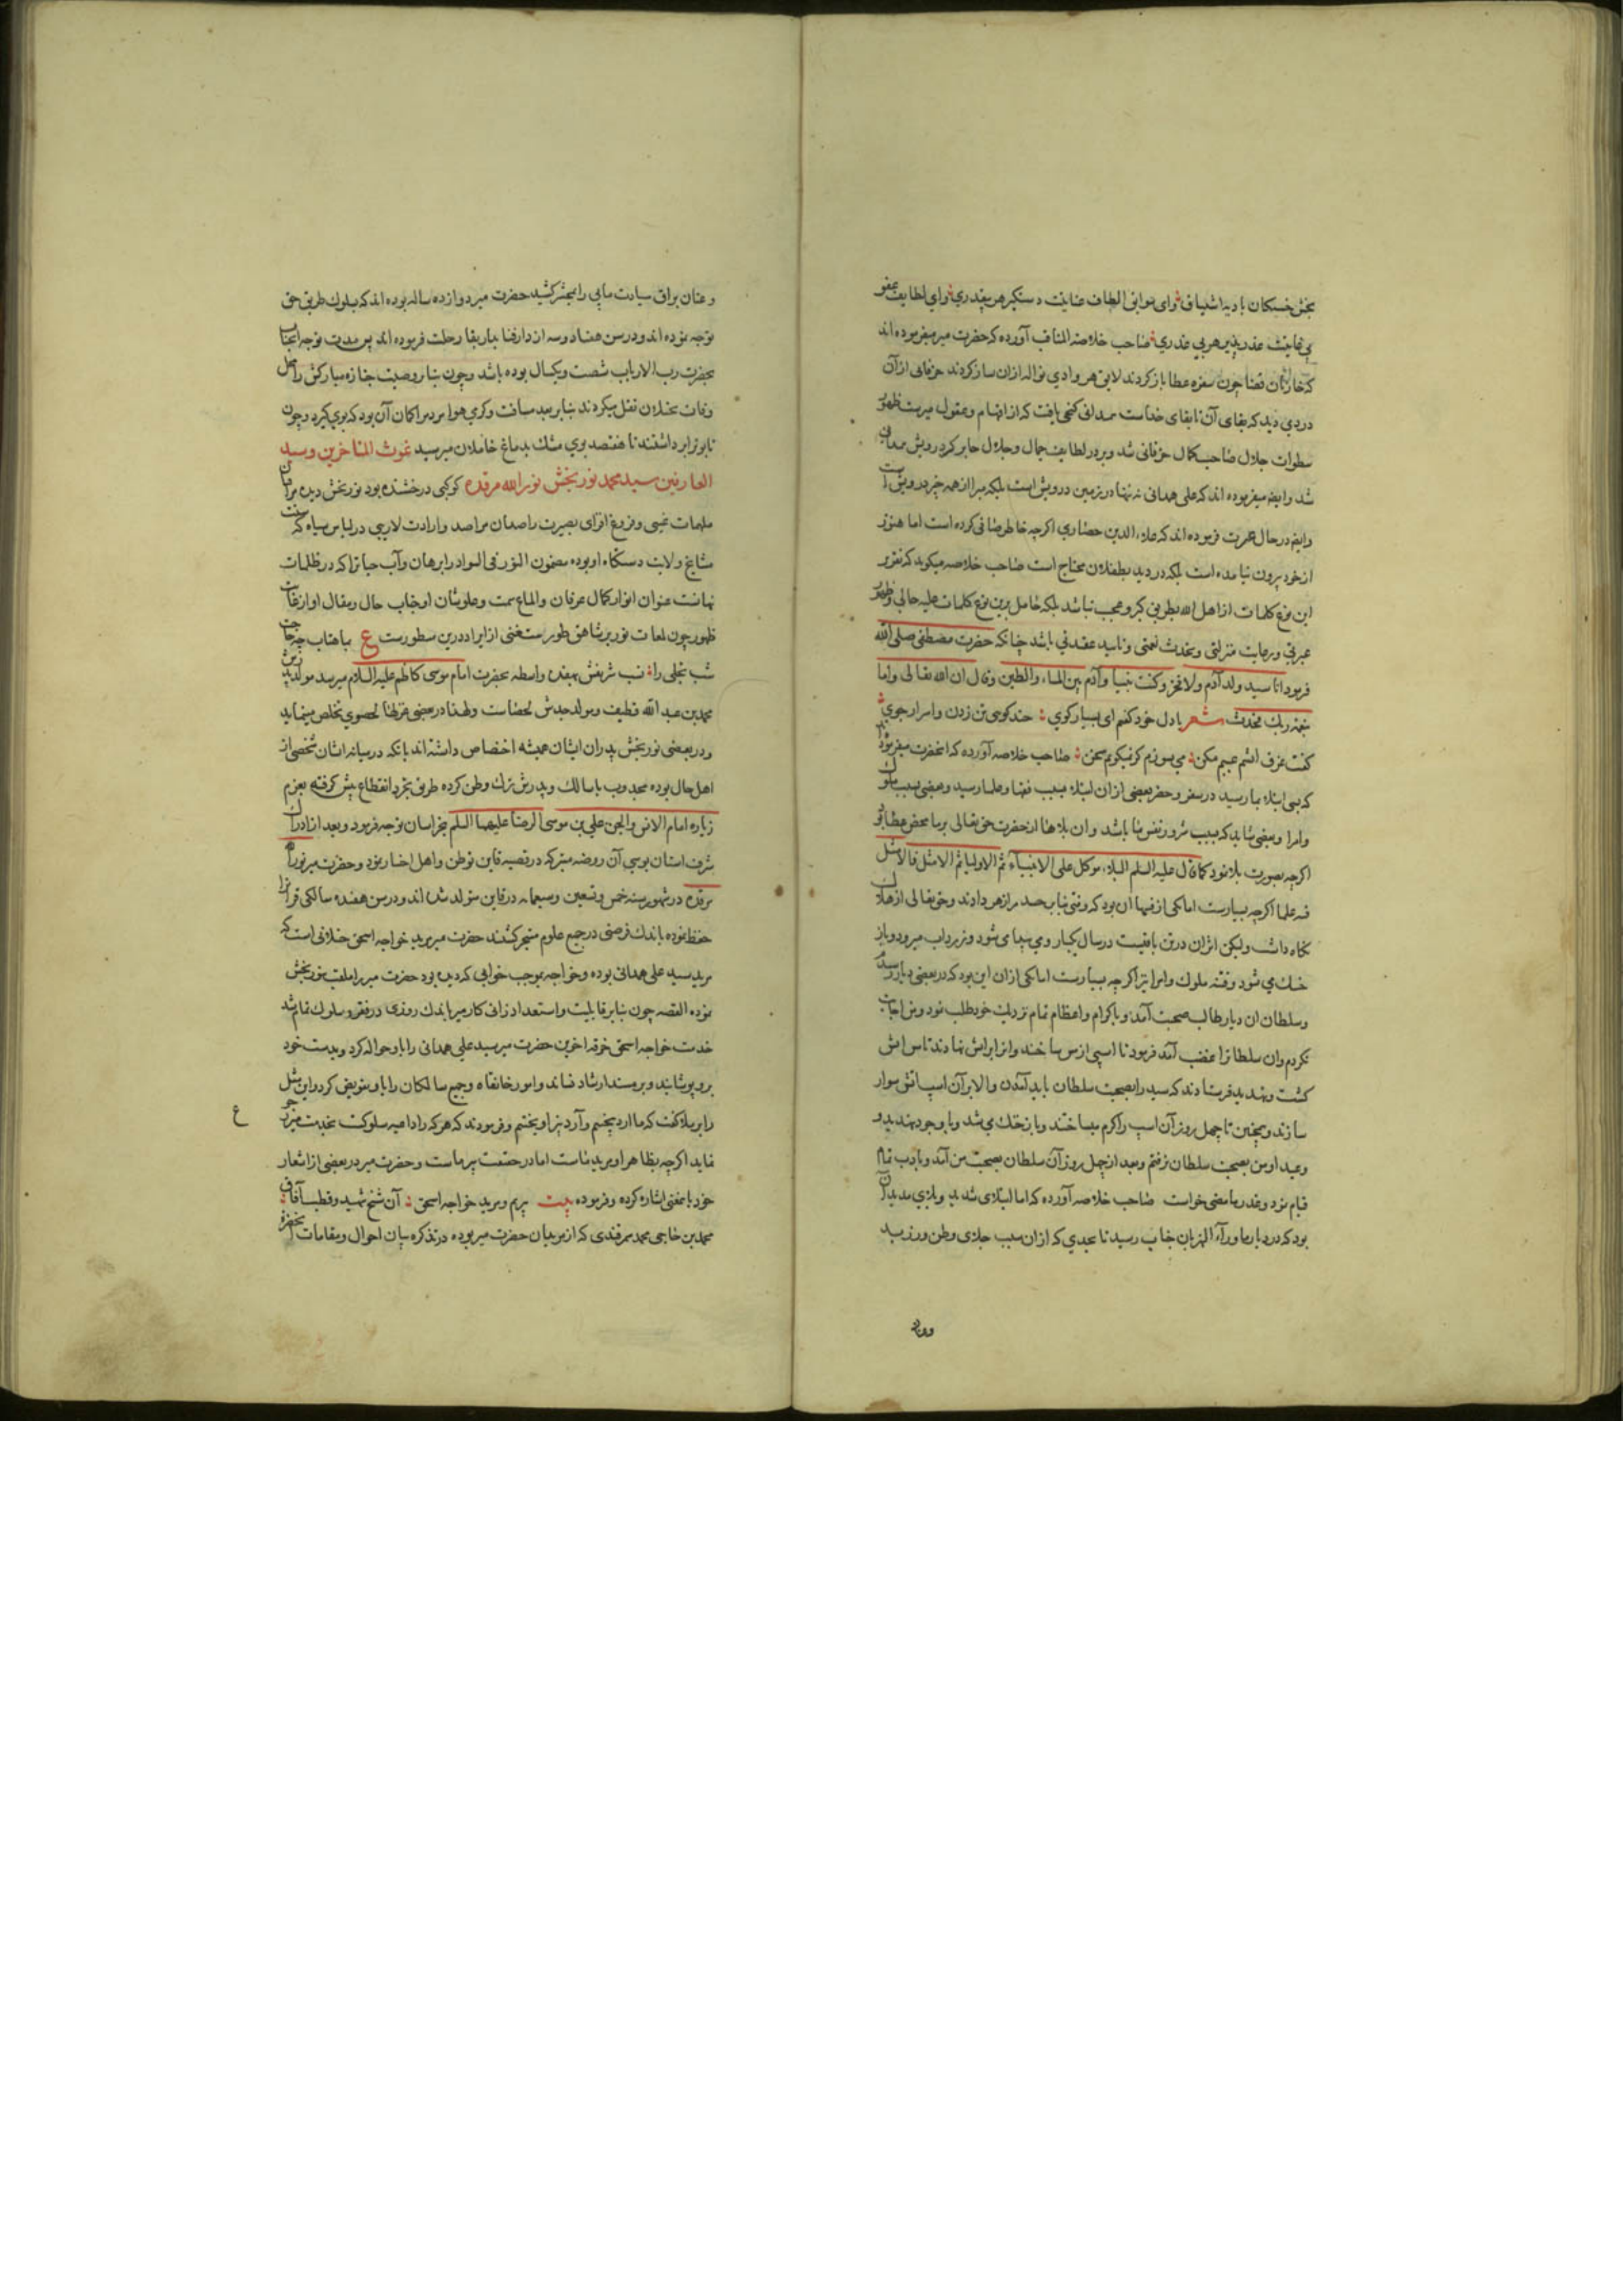 بخش خستکان بادیه اشتیاق وای نوافق الطاف عنایت دستکیر هر بیقدری وای لطایف عفو
بی غایت عذرپذیر هر بی عذری صاحب خلاصة المناقب آورده که حضرت میر میفرموده اند
که خازنان قضا چون سفره عطا باز کردند لایق هر وادی نواله ازان ساز کردند حرمانی ازآن
دردی دید که بقای آن تا بقای خداست همدانی کنجی یافت که از افهام و عقول میرست ظهور
سطوات جلال صاحب کمال حرمانی شد وبروز لطایف جمال وجلال جابر کرد درویش همدانی
شد وایضا میفرموده اند که علی همدانی نه تنها در زمین درویش است بلکه مبرا از همه چیز درویش است
وایضا در حال عسرت فرموده اند که علاء الدین حصاری اکرچه خاطر صافی کرده است اما هنوز
از خود بیرون نیامده است بلکه در دید بطفلان محتاج است صاحب خلاصه میکوید که تقریر
این نوع کلمات از اهل الله بطریق کبر و عجب نباشد بلکه حامل برین نوع کلمات علیه حالی وظهور
عبرتی ورعایت منزلتی وتحدث نعمتی وتایید عقدتی باشد چنانکه حضرت مصطفی صلی الله
فرمود انا سید ولد آدم ولا فخر وکنت نبیا وآدم بین الماء والطین وقال ان الله تعالی واما
بنعمة ربک فحدث شعر بادل خود کفتم ای بسیار کوی چند کویی تن زدن واسرار جوی
کفت غرق آتشم عیبم مکن می بسوزم کر نمیکویم سخن صاحب خلاصه آورده که آنحضرت میفرمود
که بسی ابتلاء بما رسید در سفر وحضر بعضی ازان ابتلاء بسبب فقها وعلما رسید وبعضی بسبب ملوک
وامرا وبعضی شاید که بسبب شرور نفس ما باشد وان بلاها از حضرت حق تعالی بر ما محض عطا بود
اکرچه بصورت بلا نمود کما قال علیه السلم البلاء موکل علی الانبیاء ثم الاولیا ثم الامثل فالامثل
فتنه علما اکرچه بسیارست اما یکی از فتنها آن بود که وقتی بنابر حسد مرا زهر دادند وحق تعالی از هلاک
نکاه داشت ولیکن اثر آن در تن باقیست در سال یکبار ورمی پیدا می شود وزرداب میرود وباز
خشک می شود وفتنه ملوک وامرا نیز اکرچه بسیارست اما یکی ازان این بود که در بعضی دیار رسیدم
وسلطان ان دیار طالب صحبت آمد وباکرام واعظام تمام نزدیک خود طلب نمود ومن اجابت
نکردم وان سلطانرا غضب آمد فرمود تا اسپی از مس ساختند وانرا بر آتش نهادند تا مس آتش
کشت وبتهدید فرستادند که سید را بصحبت سلطان باید آمدن والا بر آن اسب آتش سوار
سازند وهمچنین تا چهل روز آن اسپ را کرم میساختند وباز خنک می شد وبا وجود تهدید و
وعید او من بصحبت سلطان نرفتم وبعد از چهل روز آن سلطان بصحبت من آمد وبادب تمام
قیام نمود وعذر ما مضی خواست صاحب خلاصه آورده که اما ابتلای شدید وبلای مدید آن
بود که در دیار ماوراء النهر بآن جناب رسید تا بحدی که ازان سبب جلای وطن ورزید
وعنان براق سیادت مابی را بمحشر کشید حضرت میر دوازده ساله بوده اند که بسلوک طریق حق
توجه نموده اند ودر سن هفتاد وسه از دار فنا بدار بقا رحلت فرموده اند پس مدت توجه انجناب
بحضرت رب الارباب شصت ویکسال بوده باشد وچون بنابر وصیت جنازه مبارکش را از محل
وفات بختلان نقل میکردند بنابر بعد مسافت وکرمی هوا مردم را کمان آن بود که بوی کیرد وچون
تابوت را برداشتند تا مقصد بوی مشک بدماغ حاملان میرسید غوث المتاخرین وسید
العارفین سید محمد نوربخش نور الله مرقده کوکبی درخشنده بود نوربخش دیده مراقبان
ملهمات غیبی وفروغ افزای بصیرت راصدان مراصد وارادت لاریبی در لباس سیاه که سنت
مشایخ ولایت دستکاه او بوده مضمون النور فی السواد را برهان وآب حیاتراکه در ظلمات
نهانست عنوان انوار کمال عرفان والماع سمت وعلوشان اوجناب حال ومقال او از غایت
ظهور چون لمعات نور بر شاهق طور مستغنی از ایراد درین سطورست ع بماهتاب چه حاجت
شب تجلی را نسب شریفش بهفده واسطه بحضرت امام موسی کاظم علیه السلام میرسد مولد پدرش
محمد بن عبد الله قطیف ومولد جدش لحصاست ولهذا در بعضی غزلها لحصوی تخلص مینماید
ودر بعضی نوربخش پدران ایشان همیشه اختصاص داشته اند بانکه درمیانه ایشان شخصی از
اهل حال بوده مجذوب یا سالک وپدرش ترک وطن کرده طریق تجرد انقطاع پیش کرفته بعزم
زیاره امام الانس والجن علی بن موسی الرضا علیهما السلم بخراسان توجه فرمود وبعد از ادراک
شرف استان بوسی آن روضه متبرکه در قصبه قاین توطن واهل اختیار نمود وحضرت میر نورالله
مرقده در شهور سنه خمس وتسعین وسبعمایه در قاین متولد شده اند ودر سن هفده سالکی قرآنرا
حفظ نموده باندک فرصتی در جمیع علوم متبحر کشتند حضرت میر مرید خواجه اسحق ختلانی است که
مرید سید علی همدانی بوده وخواجه بموجب خوابی که دیده بود حضرت میر را ملقب بنوربخش
نموده القصه چون بنابر قابلیت واستعداد ذاتی کار میر باندک روزی در فقر وسلوک تمام شد
خدمت خواجه اسحق خرقه اخرین حضرت میر سید علی همدانی را باو حواله کرد وبدست خود
برو پوشانید وبر مسند ارشاد نشاند وامور خانقاه وجمیع سالکان را باو تفویض کرد واین مثل
را بر ملا کفت که ما ارد بیختیم وآرد بیز اویختیم وفرمودند که هر که را داعیه سلوکست بخدمت میر رجوع
نماید اکرچه بظاهر او مرید ماست اما در حقیقت پیر ماست وحضرت میر در بعضی از اشعار
خود باین معنی اشاره کرده وفرموده بیت پیرم ومرید خواجه اسحق آن شیخ شهید وقطب آفاق
محمد بن حاجی محمد سمرقندی که از مریدان حضرت میر بوده در تذکره بیان احوال ومقامات آنحضرت
ع